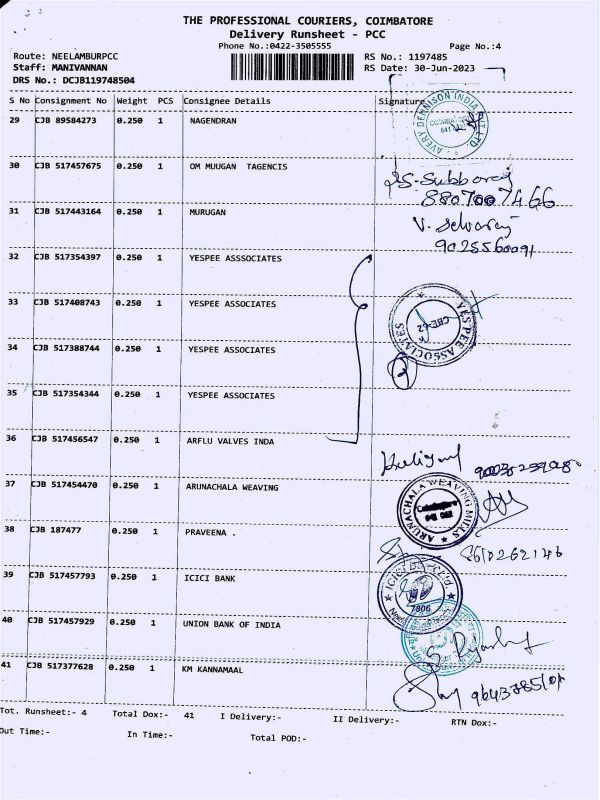 THE PROFESSIONAL COURIERS, COIMBATORE
Delivery Runsheet - PCC
Phone No.:0422-3505555
Page No.:4
Route: NEELAMBURPCC
RS No.: 1197485
Staff: MANIVANNAN
RS Date: 30-Jun-2023
DRS No.: DCJB119748504
S No Consignment No Weight PCS Consignee Details Signature
29 CJB 89584273 0.250 1 NAGENDRAN
AVERY DENNISON INDIA PVT LTD
COIMBATORE
30 CJB 517457675 0.250 1 OM MUUGAN TAGENCIS
S. Subboraj
8807007466
31 CJB 517443164 0.250 1 MURUGAN
V. Selvaraj
9025560091
32 CJB 517354397 0.250 1 YESPEE ASSSOCIATES
33 CJB 517408743 0.250 1 YESPEE ASSOCIATES
YESPEE ASSOCIATES
CBE-62
34 CJB 517388744 0.250 1 YESPEE ASSOCIATES
35 CJB 517354344 0.250 1 YESPEE ASSOCIATES
36 CJB 517456547 0.250 1 ARFLU VALVES INDA
37 CJB 517454470 0.250 1 ARUNACHALA WEAVING
ARUNACHALA WEAVING MILLS
38 CJB 187477 0.250 1 PRAVEENA .
39 CJB 517457793 0.250 1 ICICI BANK
ICICI Bank Ltd
7806
40 CJB 517457929 0.250 1 UNION BANK OF INDIA
41 CJB 517377628 0.250 1 KM KANNAMAAL
Tot. Runsheet:- 4 Total Dox:- 41 I Delivery:- II Delivery:- RTN Dox:-
Out Time:- In Time:- Total POD:-